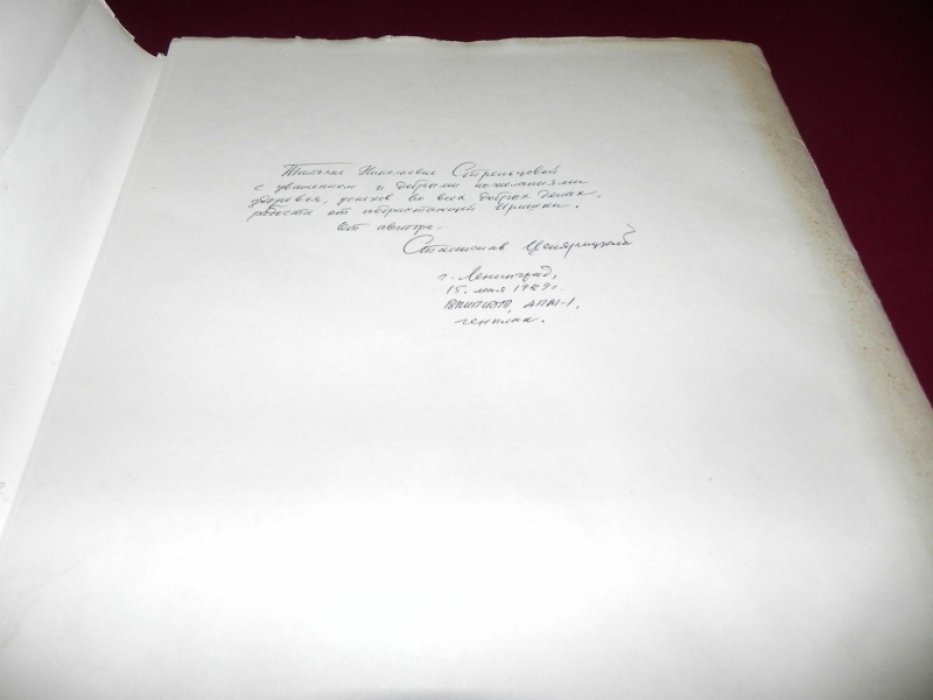 Татьяне Николаевне Стрельцовой
с уважением и добрыми пожеланиями
здоровья, успехов во всех добрых делах,
радости от подрастающей Иришки.
От автора.
Станислав
г. Ленинград,
15. мая 1989г.
ВНИПИЭТ,
генплан.